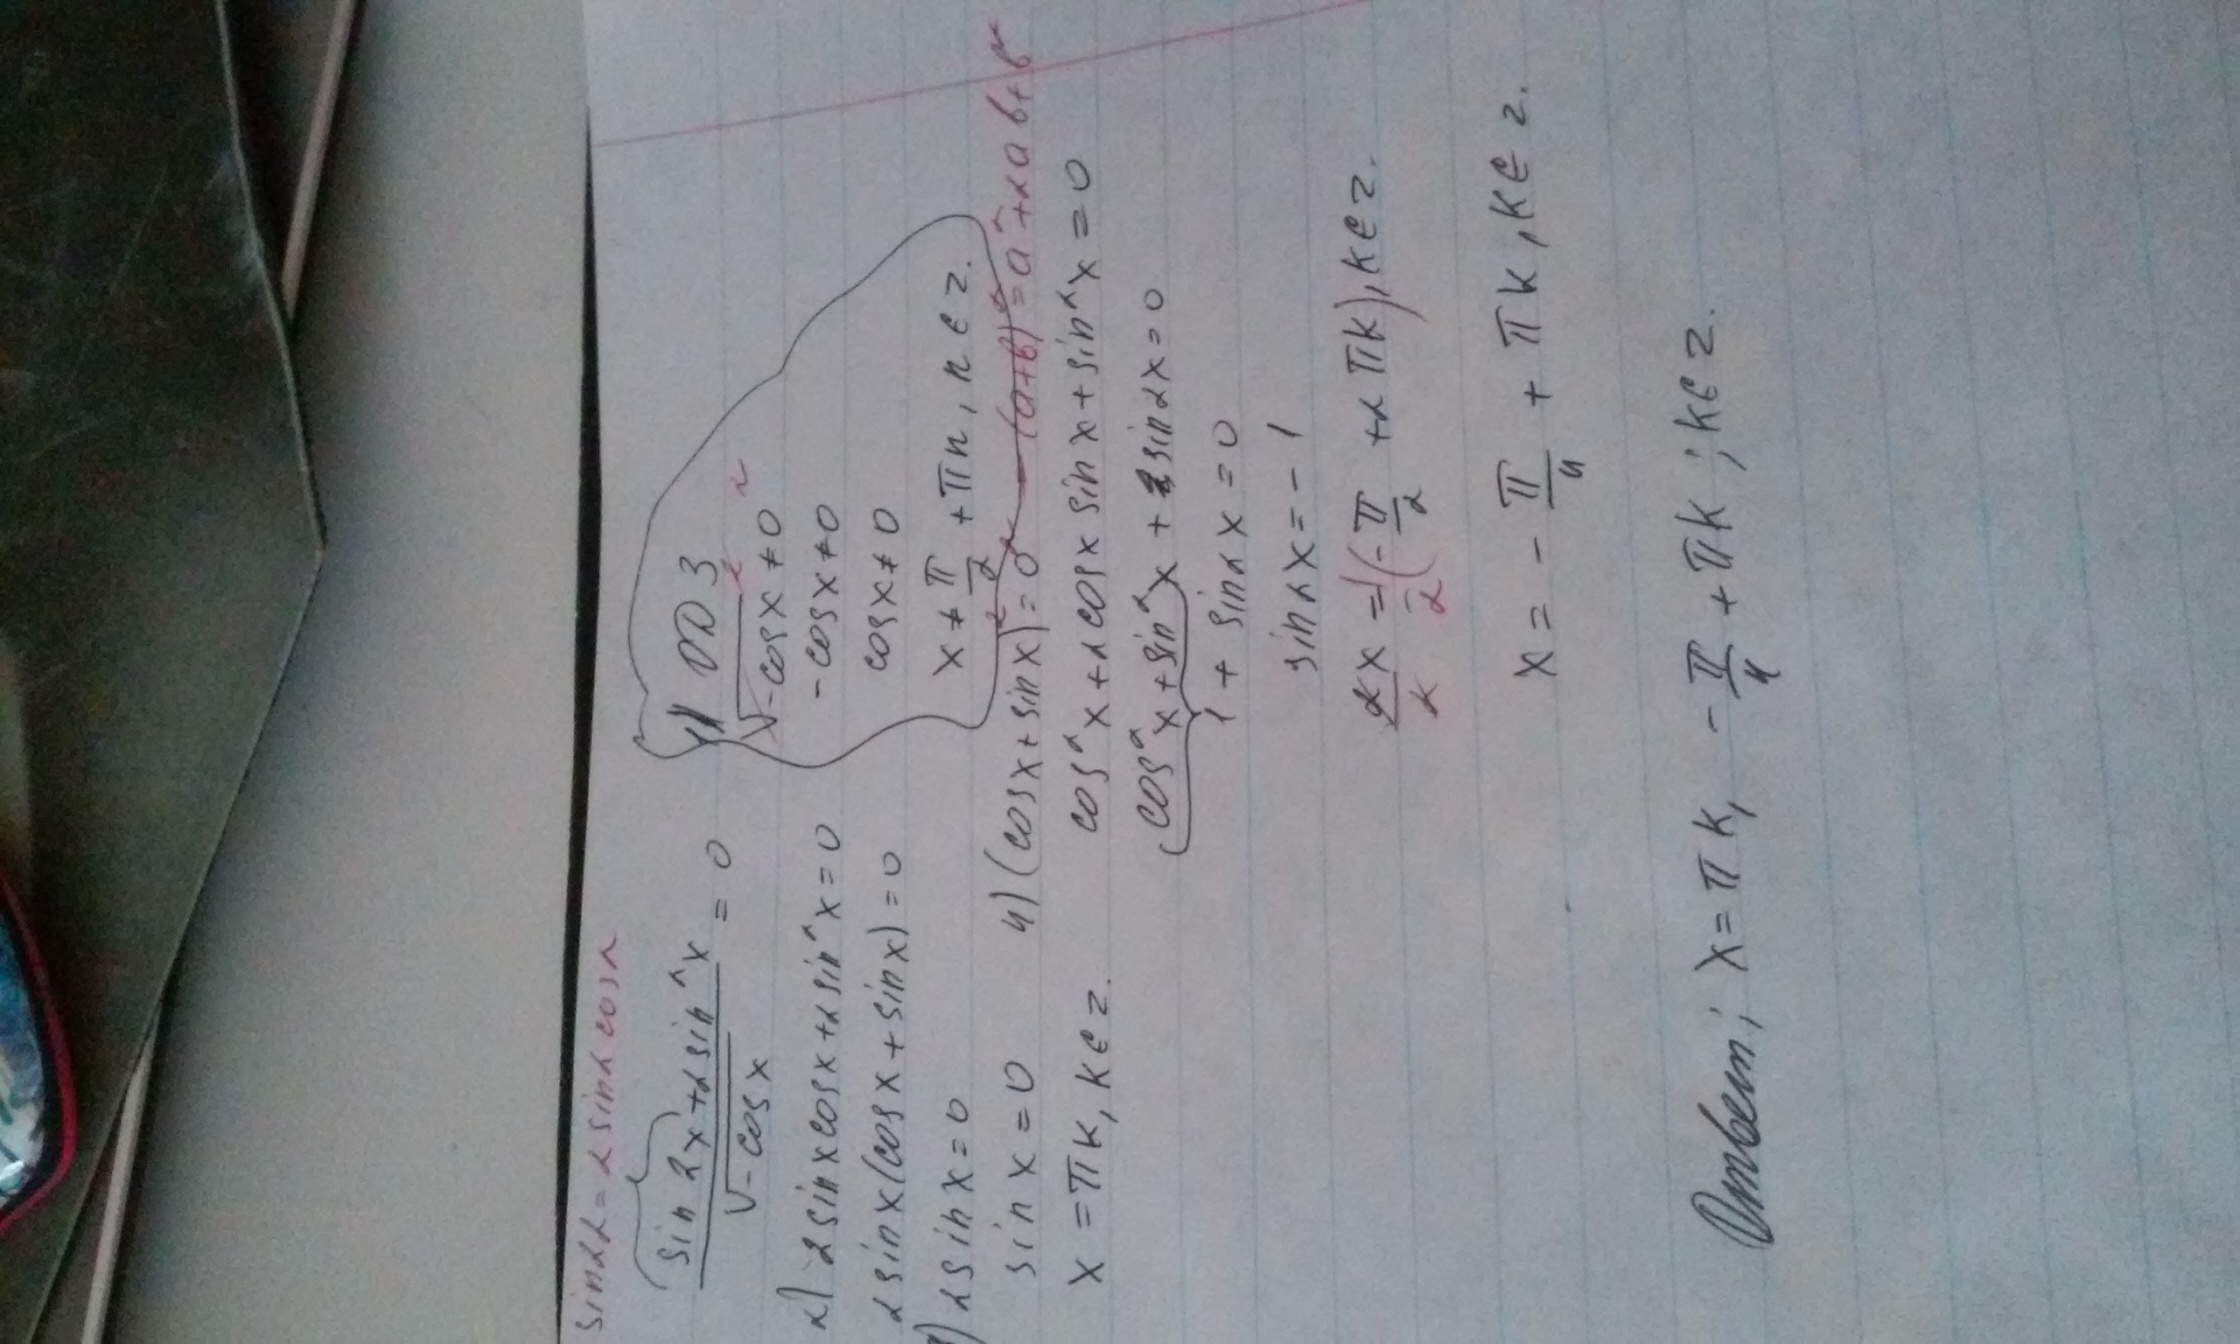 sin2α = 2sinα cosα
(sin 2x + 2sin²x) / √(-cosx) = 0
1) ОДЗ
√(-cosx)² ≠ 0²
-cosx ≠ 0
cosx ≠ 0
x ≠ π/2 + πn, n ∈ z.
2) 2sinxcosx + 2sin²x = 0
2sinx(cosx + sinx) = 0
3) 2sinx = 0
sinx = 0
x = πk, k ∈ z.
4) (cosx + sinx)² = 0² — (a+b)² = a² + 2ab + b²
cos²x + 2cosx sinx + sin²x = 0
cos²x + sin²x + sin2x = 0
1 + sin2x = 0
sin2x = -1
2x/2 = 1/2(-π/2 + 2πk), k ∈ z.
x = -π/4 + πk, k ∈ z.
Ответ; x = πk, -π/4 + πk; k ∈ z.